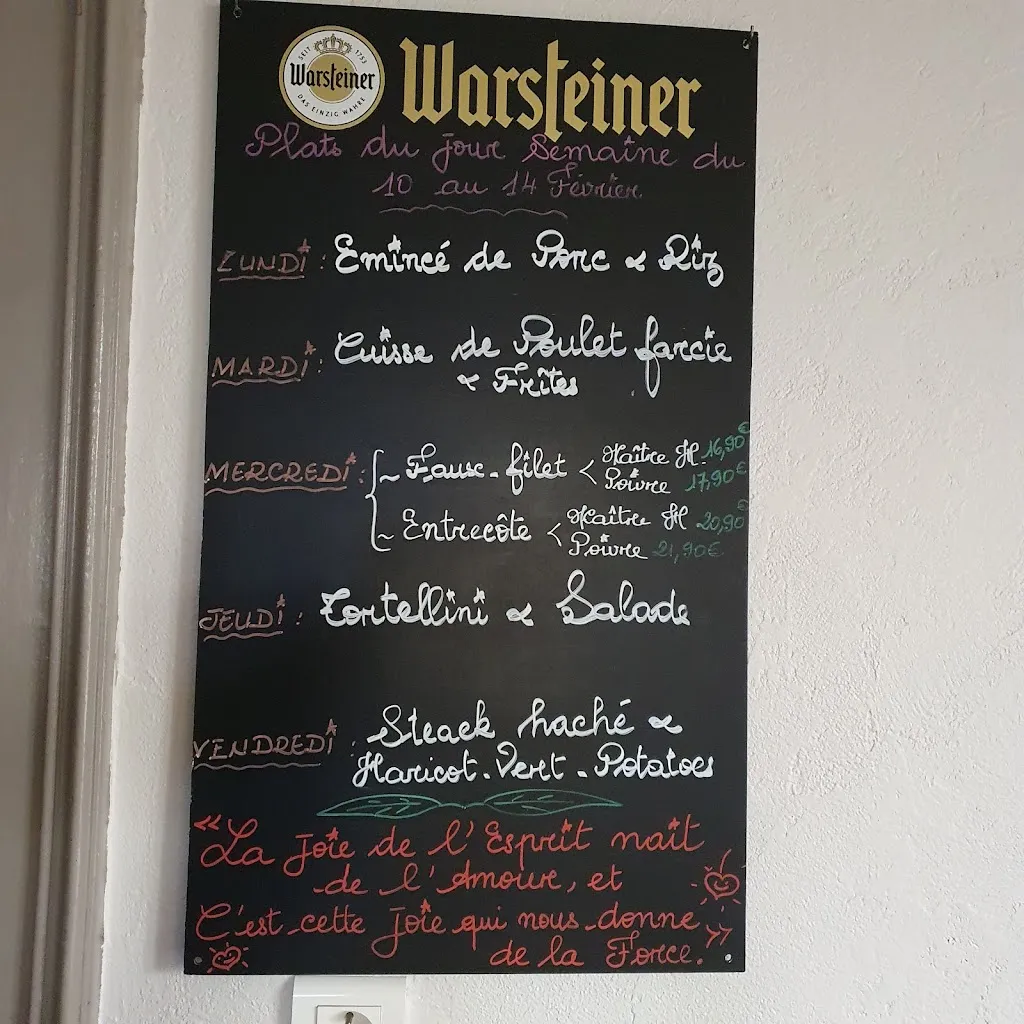 SEIT 1753
Warsteiner
DAS EINZIG WAHRE
Warsteiner
Plats du jour Semaine du
10 au 14 Février
LUNDi : Emincé de Porc & Riz
MARDi : Cuisse de Poulet farcie
& Frites
MERCREDi : ~ Faux-filet < Maître H. 16,90€
Poivre 17,90€
~ Entrecôte < Maître H 20,90€
Poivre 21,90€
JEUDi : Tortellini & Salade
VENDREDi : Steack haché &
Haricot-Vert-Potatoes
"La Joie de l'Esprit naît
de l'Amour, et
C'est cette Joie qui nous donne
de la Force."